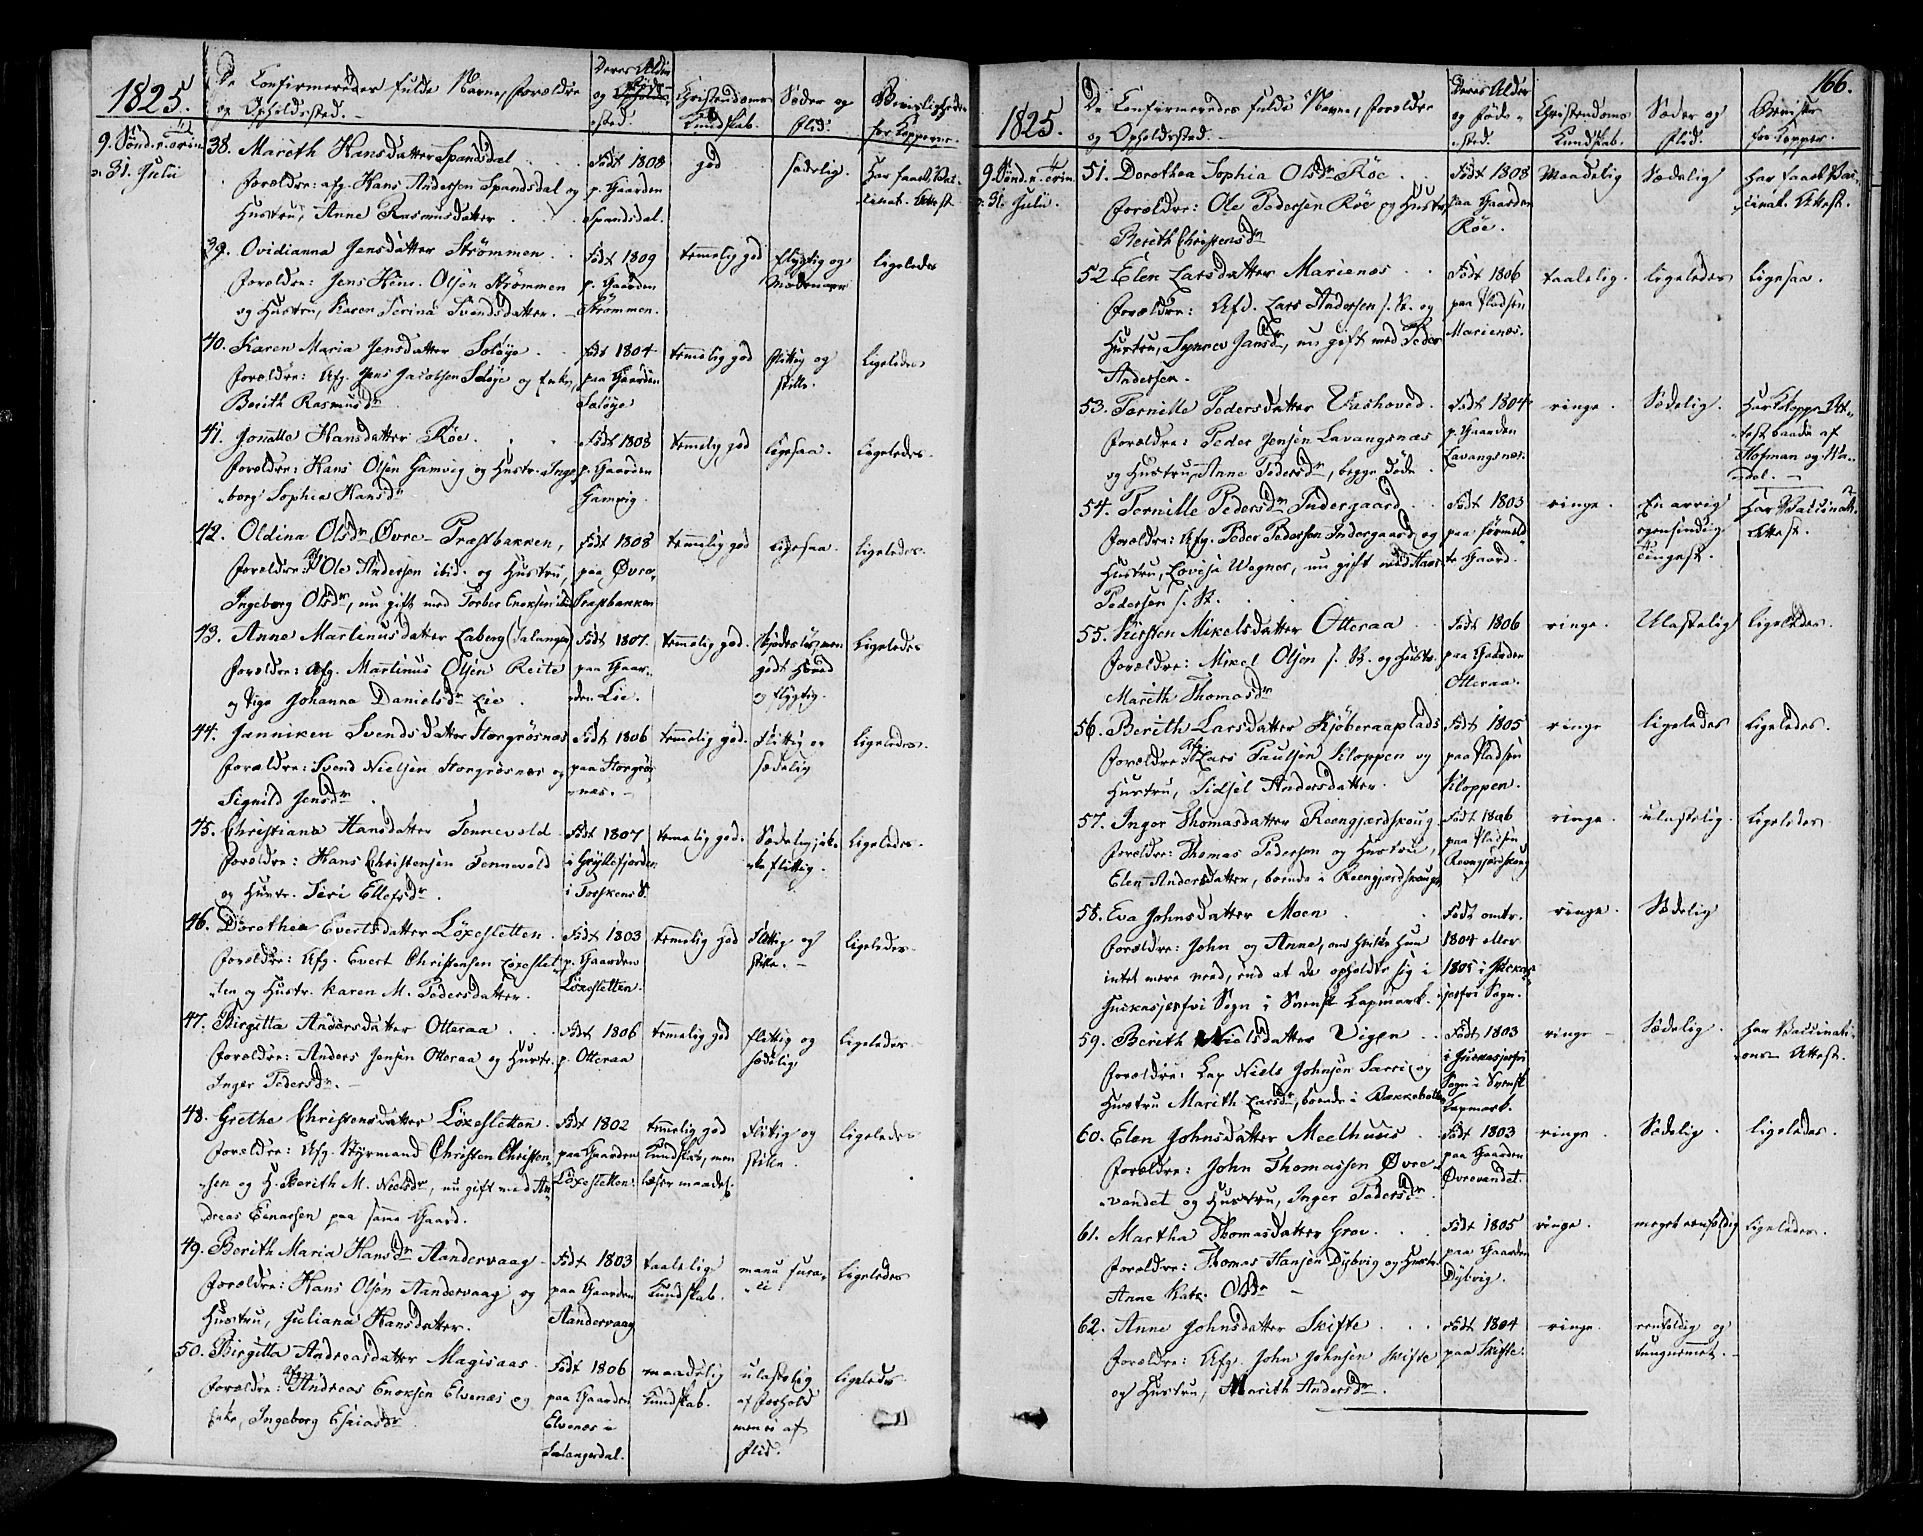 1825.
De Confirmeredes fulde Navne, Forældre
og Opholdssted.
Deres Alder
og Føde-
sted.
Christendoms
Kundskab.
Sæder og
Flid.
for Kopperne.
9. Sønd. e. Trin.
31. Julii
38. Mareth Hansdatter Spandsdal
Forældre: afg. Hans Andersen Spandsdal og
Hustru, Anne Rasmusdatter
Født 1808
p. Gaarden
Spandsdal.
god
sædelig.
Har faaet Vac-
cinat. Attest
39. Ovidianna Jensdatter Strømmen
Forældre: Jens Hins. Olsen Strømmen
og Hustru, Karen Serina Svendsdatter.
Født 1809
p. Gaarden
Strømmen.
temmelig god
flygtig og
ligeledes
40. Karen Maria Jensdatter Soløye
Forældre: Afg. Jens Jacobsen Soløye og Enke,
Berith Rasmusdr
Født 1804
paa Gaarden
Soløye
temmelig god
flittig og
stille.
Ligeledes
41. Jonette Hansdatter Røe.
Forældre: Hans Olsen Gamvig og Hustr. Inge-
borg Sophia Hansdr
Født 1808
p. Gaarden
Gamvig.
temmelig god
ligesaa.
ligeledes.
42. Oldina Olsdr Øvre-Præstbakken,
Forældre: Afg. Ole Andersen ibid. og Hustru,
Ingeborg Olsdr, nu gift med Torber Enoksen ibid
Født 1808
paa Øvre-
Præstbakken
temmelig god
ligesaa.
ligeledes.
43. Anne Martinusdatter Laberg (Salangen)
Forældre: Afg. Martinus Olsen Reite
og Pige Johanna Danielsdr Lie.
Født 1807.
paa Gaar-
den Lie.
temmelig god.
godt Hoved
og flygtig.
ligeledes
44. Janniken Svendsdatter Storgrøsnæs
Forældre: Svend Nielsen Storgrøsnæs og
Signild Jensdr
Født 1806
paa Storgrøs-
næs.
temmelig god.
Flittig og
sædelig
ligeledes.
45. Christiana Hansdatter Tennevold
Forældre: Hans Christensen Tennevold
og Hustr. Siri Ellefsdr.
Født 1807
i Gryllefjorden
i Torskens S.
temmelig god.
Sædelig, ik-
ke flittig.
ligeledes.
46. Dorothea Evertsdatter Løxesletten
Forældre: Afg. Evert Christensen Løxeslet-
ten og Hustr. Karen M. Pedersdatter.
Født 1803
p. Gaarden
Løxesletten.
temmelig god
Flittig og
stille.
ligeledes.
47. Birgitta Andersdatter Otteraa
Forældre: Anders Jensen Otteraa og Hustr.
Inger Pedersdr.
Født 1806
p. Otteraa
temmelig god
flittig og
sædelig
ligeledes.
48. Grethe Christensdatter Løxesletten.
Forældre: Afg. Styrmand Christen Christen-
sen og H. Berith M. Nielsdr, nu gift med An-
dreas Einarsen paa samme Gaard.
Født 1802
paa Gaarden
Løxesletten.
temmelig god
Kundskab, men
læser maadel.
Flittig og
stille.
ligeledes
49. Berith Maria Hansdr Aandervaag
Forældre: Hans Olsen Aandervaag og
Hustru, Juliana Hansdatter.
Født 1803
paa Gaarden
Aandervaag
taalelig
Kundskab.
manu fura-
ci.
ligeledes
50. Birgitta Andreasdatter Magisaas
Forældre: Afg. Andreas Enoksen Elvenæs og
Enke, Ingeborg Esaiasdr
Født 1806
paa Gaarden
Elvenæs i
Salangsdal.
maadelig
Kundskab.
ulastelig
af Forhold
men ei af
Flid.
ligeledes
166.
1825.
De Confirmeredes fulde Navne, Forældre
og Opholdssted.
Deres Alder
og Føde-
sted.
Christendoms
Kundskab.
Sæder og
Flid.
Beviser
for Kopper.
9. Sønd. e. Trin.
31. Julii.
51. Dorothea Sophia Olsdr Røe
Forældre: Ole Pedersen Røe og Hustru,
Berith Christensdr
Født 1808
paa Gaarden
Røe.
Maadelig
Sædelig
Har faaet Vac-
cinat. Attest.
52. Elen Larsdatter Marienæs
Forældre: Afd. Lars Andersen s. St. og
Hustru, Synnev Jansdr, nu gift med Peder
Andersen.
Født 1806
paa Pladsen
Marienæs.
taalelig.
ligeledes
Ligesaa.
53. Pernille Pedersdatter Vashoved.
Forældre: Peder Jensen Lavangsnæs
og Hustru, Anne Pedersdr, begge døde.
Født 1804
p. Gaarden
Lavangsnæs.
ringe.
Sædelig.
Har Koppe At-
test baade af
Hofman og Wa-
del.
54. Pernille Pedersdr Indergaard
Forældre: Afg. Peder Pedersen Indergaard og
Hustru, Lovise Wogner, nu gift med Hans
Pedersen s. St.
Født 1803
paa førmeld-
te Gaard.
ringe.
En arrig
egensindig
Tingest.
Har Vaccinat.
Attest.
55. Kirsten Mikelsdatter Otteraa
Forældre: Mikel Olsen s. St. og Hustr.
Mareth Thomasdr
Født 1806
paa Gaarden
Otteraa.
ringe.
Ulastelig
ligeledes.
56. Berith Larsdatter Kjøberaaplads
Forældre: Afg. Lars Paulsen Kloppen og
Hustru, Sidsel Andersdatter.
Født 1805
paa Pladsen
Kloppen.
ringe
ligeledes
ligeledes.
57. Inger Thomasdatter Reengjærdskoug
Forældre: Thomas Pedersen og Hustru,
Elen Andersdatter, boende i Reengjærdskoug
Født 1806
paa Pladsen
Reengjærdskoug
ringe.
ulastelig.
ligeledes
58. Eva Johnsdatter Moen
Forældre: John og Anne, om hvilke hun
intet mere veed, end at de opholder sig i
Juckasjerfvi Sogn i Svensk Lapmark.
Født omtr.
1804 eller
1805 i Juckas-
jerfvi Sogn.
ringe.
Sædelig
59. Berith Nielsdatter Vigen
Forældre: Lap Niels Johnsen Sarri og
Hustru Marith Larsdr, boende i Bækkebotten
Født 1803
i Juckasjerfvi
Sogn i Svensk
Lapmark.
ringe
Sædelig.
har Vaccinati-
ons Attest.
60. Elen Johnsdatter Meelhuus
Forældre: John Thomassen Øvre-
vandet og Hustru, Inger Pedersdr.
Født 1803
paa Gaarden
Øvrevandet.
ringe.
Sædelig.
ligeledes.
61. Martha Thomasdatter Grov
Forældre: Thomas Hansen Dybvig og Hustr.
Anne Kat. Olsdr
Født 1805
paa Gaarden
Dybvig.
ringe.
meget eenfoldig
ligeledes.
62. Anne Johnsdatter Skifte
Forældre: Afg. John Johnsen Skifte
og Hustru, Marith Andersdr.
Født 1804
paa Skifte.
ringe.
eenfoldig og
tungnemet.